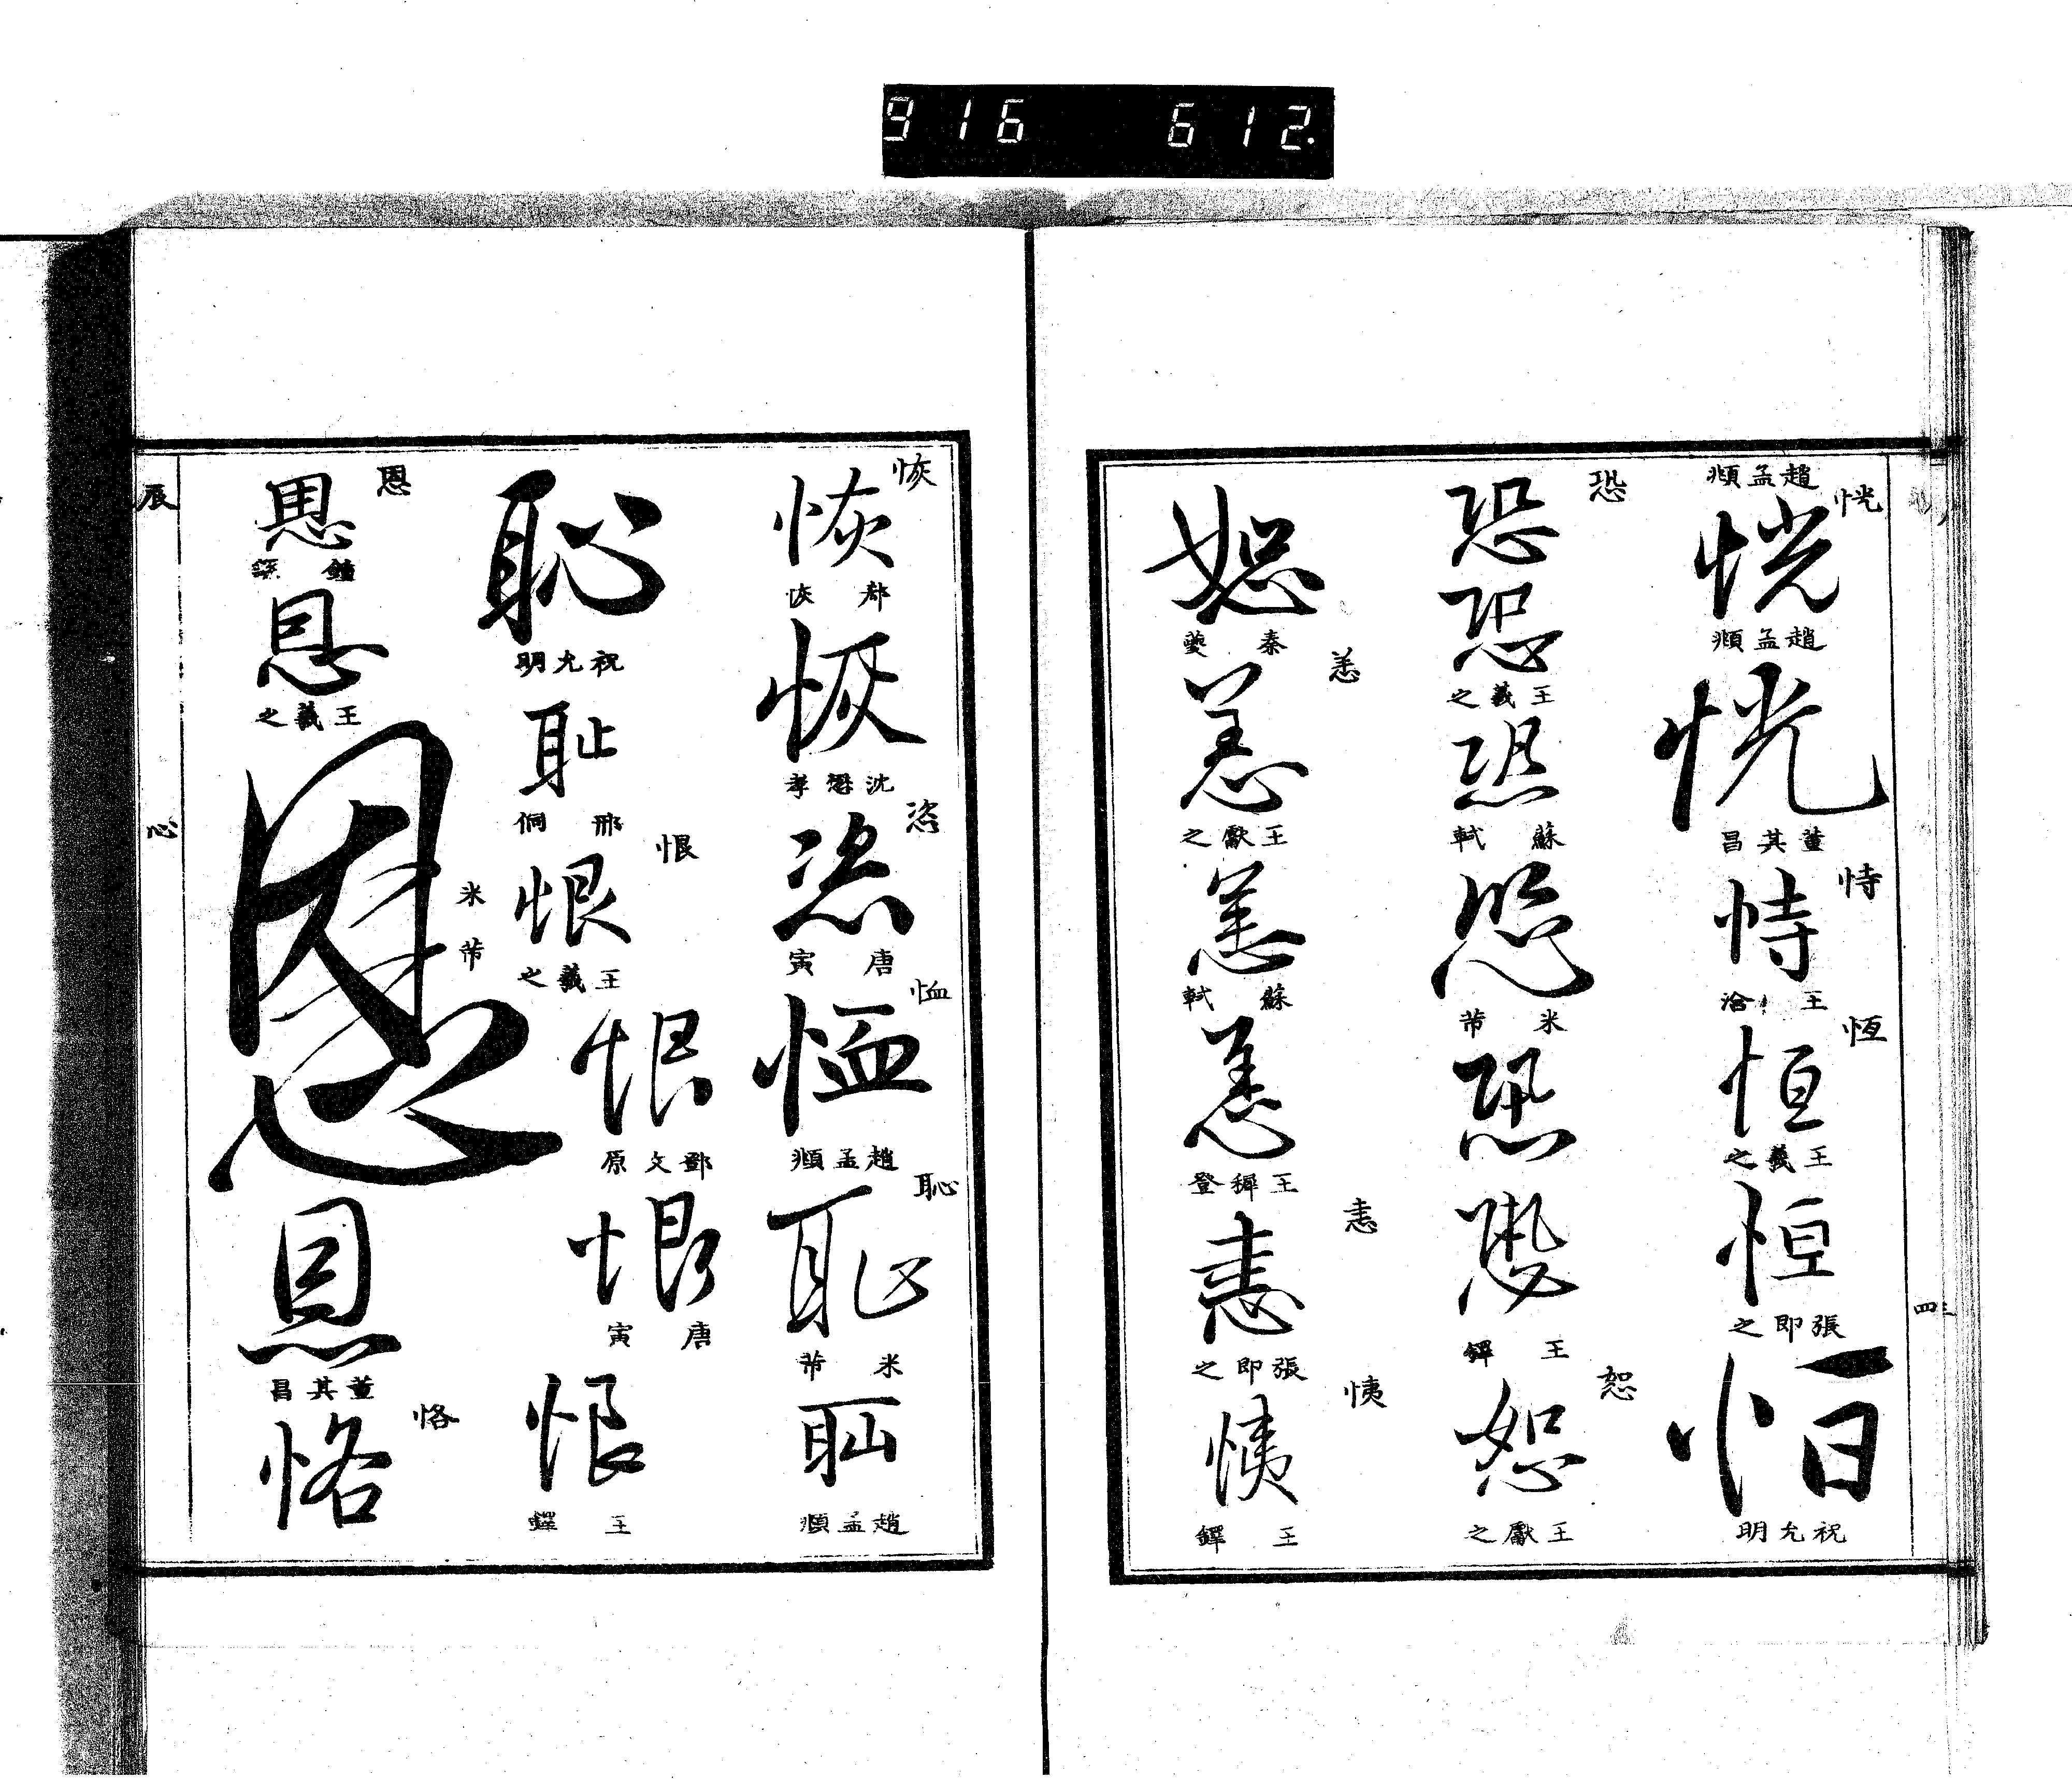 916 612.
趙孟頫
恍
恍
趙孟頫
恍
董其昌
恃
恃
王洽
恆
恆
王羲之
恒
張即之
恒
祝允明
恐
恐
恐
王羲之
恐
蘇軾
恐
米芾
恐
恐
王鐸
恕
恕
王獻之
恕
秦夔
恙
恙
王獻之
恙
蘇軾
恙
王穉登
恚
恚
張即之
恞
恞
王鐸
四三
恢
恢
郗恢
恢
沈懋孝
恣
恣
唐寅
恤
恤
趙孟頫
恥
恥
米芾
恥
趙孟頫
恥
祝允明
恥
邢侗
恨
恨
王羲之
恨
鄧文原
恨
唐寅
恨
王鐸
恩
恩
鍾繇
恩
王羲之
恩
米芾
恩
董其昌
恪
恪
辰
心